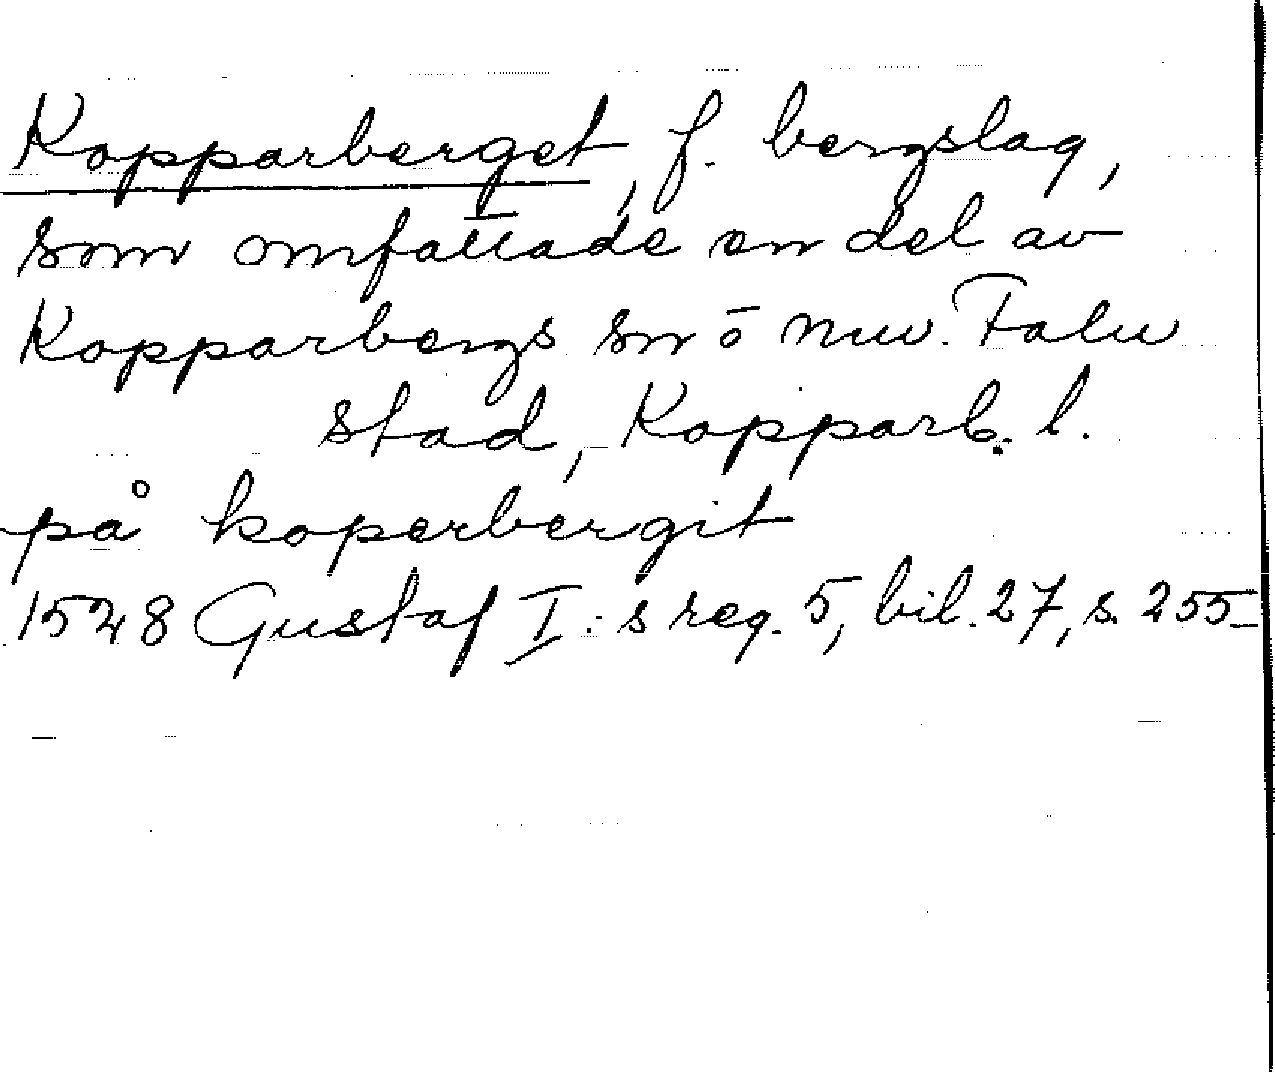 Kopparberget, f. bergslag,
som omfattade en del av
Kopparbergs sn o nuv. Falu
stad, Kopparb. l.
på koperbergit
1528 Gustaf I:s reg. 5, bil. 27, s. 255